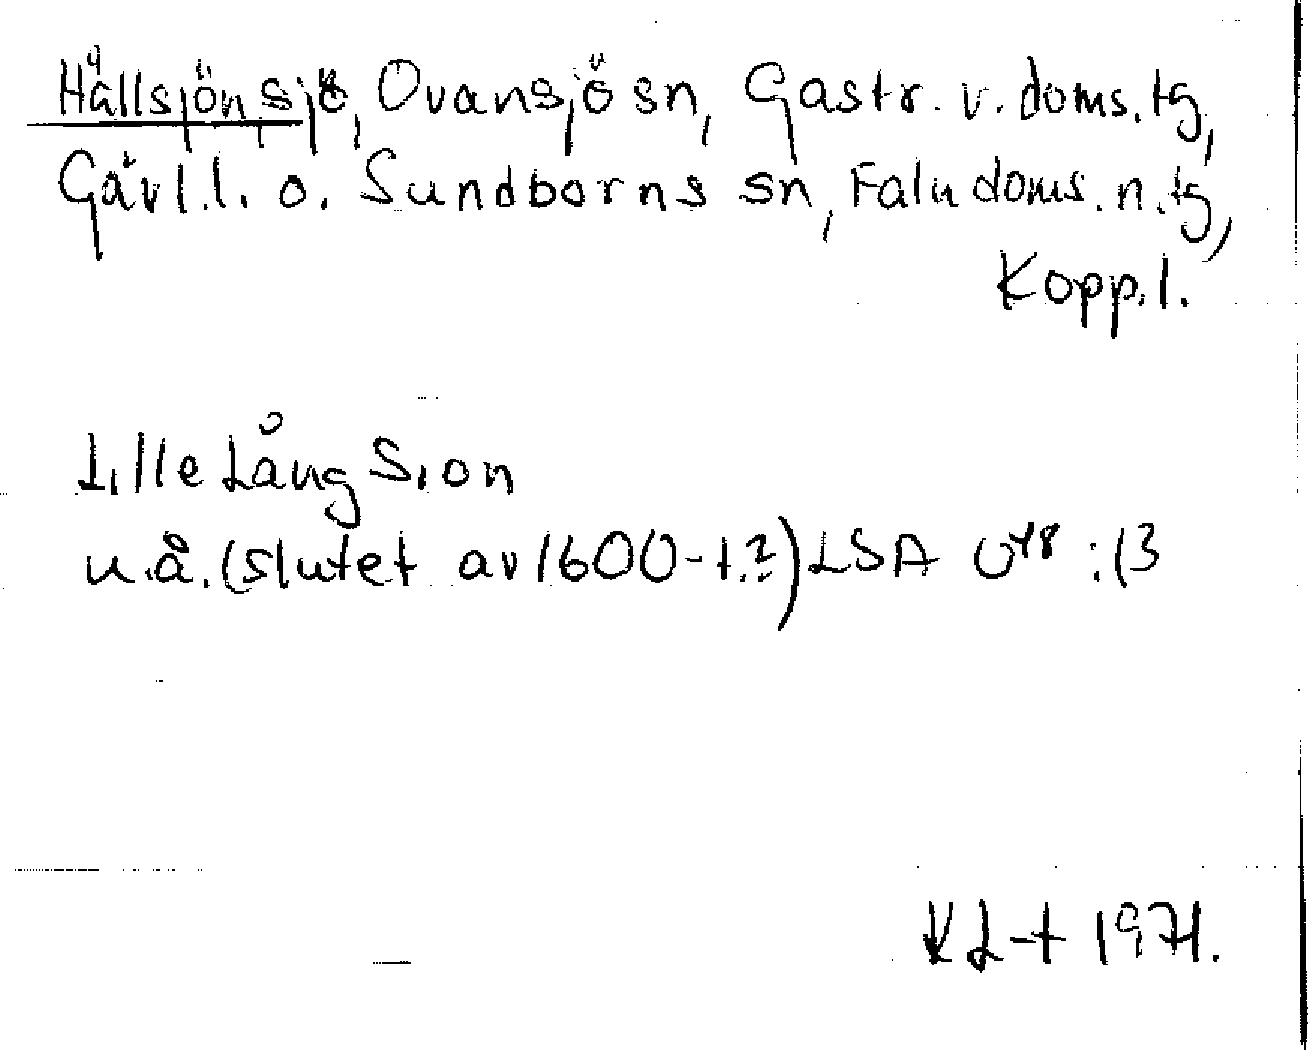 Hållsjön, sjö, Ovansjö sn, Gästr. v. doms. tg,
Gävl.l. o. Sundborns sn, Falu doms. n. tg,
Kopp.l.
Lille Lång Sion
u.å. (slutet av 1600-t.?) LSA U48:13
KL-t 1971.